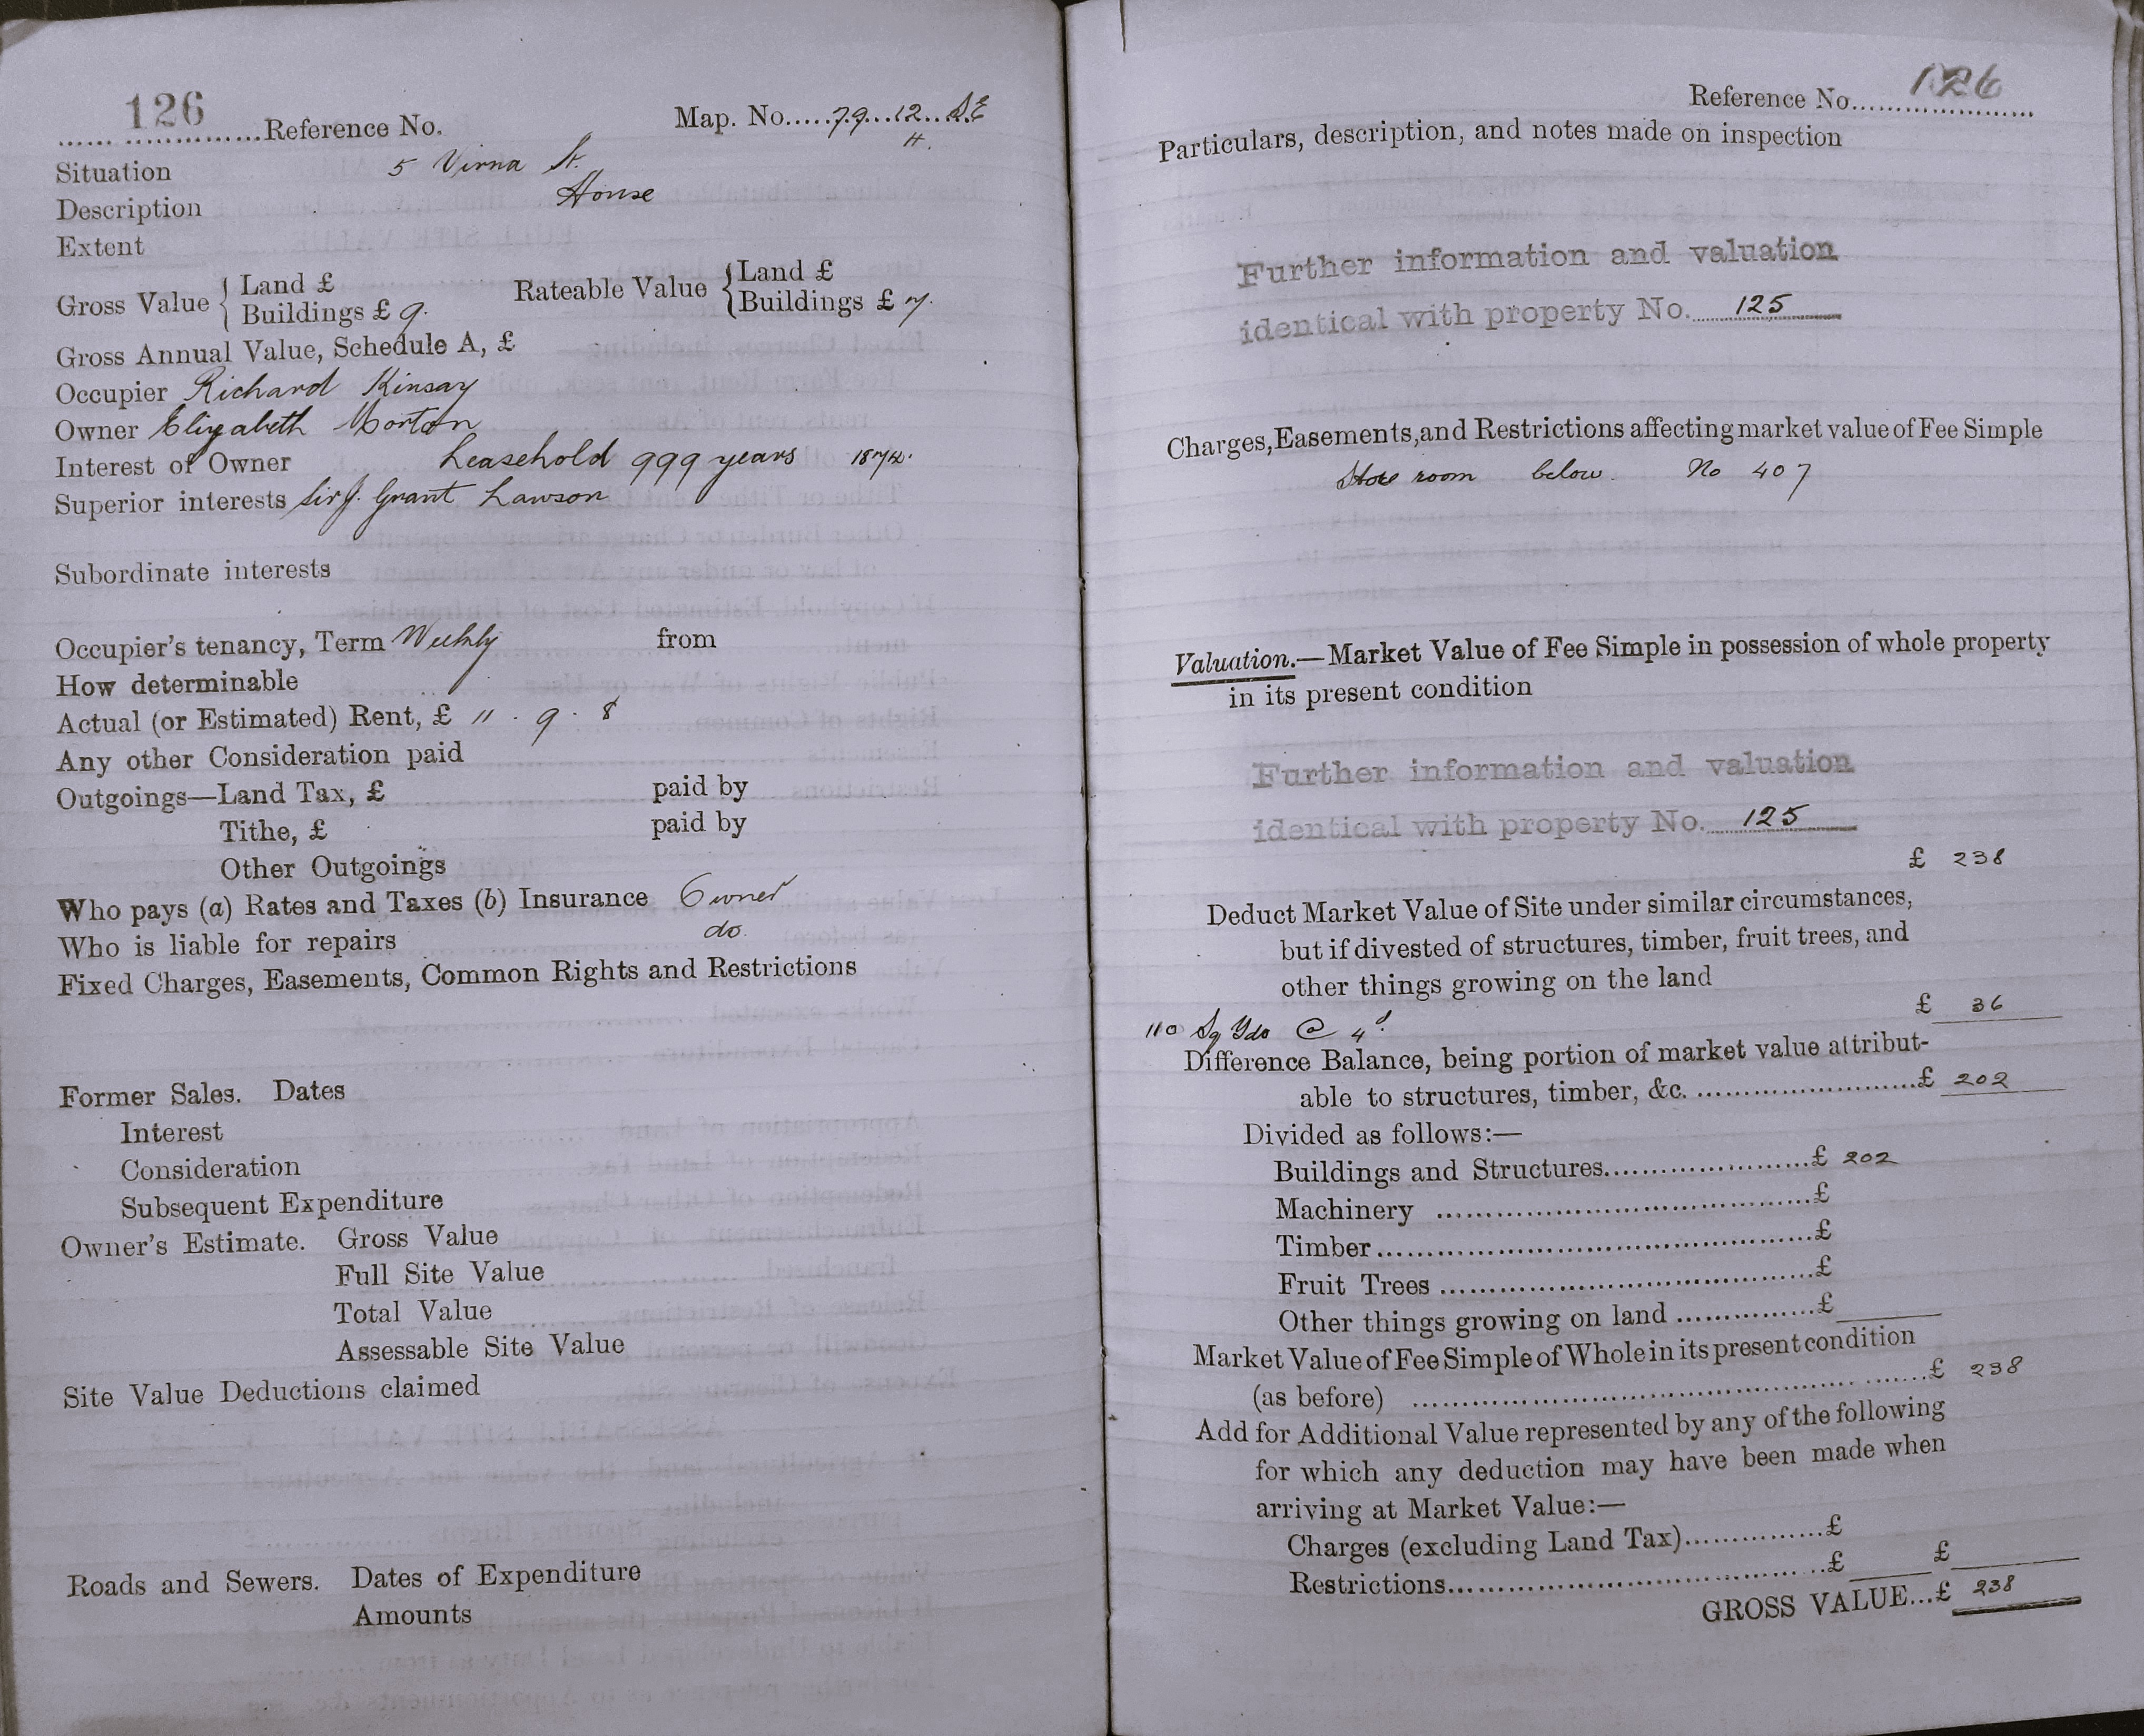 126
...... ...............Reference No.
Map. No.....79...12...S.E
H.
Situation 5 Virna St.
Description House
Extent
Gross Value { Land £
Buildings £ 9.
Rateable Value { Land £
Buildings £ 7.
Gross Annual Value, Schedule A, £
Occupier Richard Kinsay
Owner Elizabeth Morton
Interest of Owner Leasehold 999 years 1874.
Superior interests Sir J. Grant Lawson
Subordinate interests
Occupier's tenancy, Term Weekly from
How determinable
Actual (or Estimated) Rent, £ 11 . 9 . 8
Any other Consideration paid
Outgoings—Land Tax, £ paid by
Tithe, £ paid by
Other Outgoings
Who pays (a) Rates and Taxes (b) Insurance Owner
Who is liable for repairs do.
Fixed Charges, Easements, Common Rights and Restrictions
Former Sales. Dates
Interest
Consideration
Subsequent Expenditure
Owner's Estimate. Gross Value
Full Site Value
Total Value
Assessable Site Value
Site Value Deductions claimed
Roads and Sewers. Dates of Expenditure
Amounts
Reference No. 126
Particulars, description, and notes made on inspection
Further information and valuation
identical with property No. 125
Charges, Easements, and Restrictions affecting market value of Fee Simple
Store room below. No 407
Valuation.—Market Value of Fee Simple in possession of whole property
in its present condition
Further information and valuation
identical with property No. 125
£ 238
Deduct Market Value of Site under similar circumstances,
but if divested of structures, timber, fruit trees, and
other things growing on the land
£ 36
110 Sq Yds @ 4d.
Difference Balance, being portion of market value attribut-
able to structures, timber, &c. ........................£ 202
Divided as follows:—
Buildings and Structures......................£ 202
Machinery ........................................£
Timber..............................................£
Fruit Trees .......................................£
Other things growing on land ...............£
Market Value of Fee Simple of Whole in its present condition
(as before) ..........................................................£ 238
Add for Additional Value represented by any of the following
for which any deduction may have been made when
arriving at Market Value:—
Charges (excluding Land Tax)...............£
Restrictions..........................................£ £
GROSS VALUE...£ 238